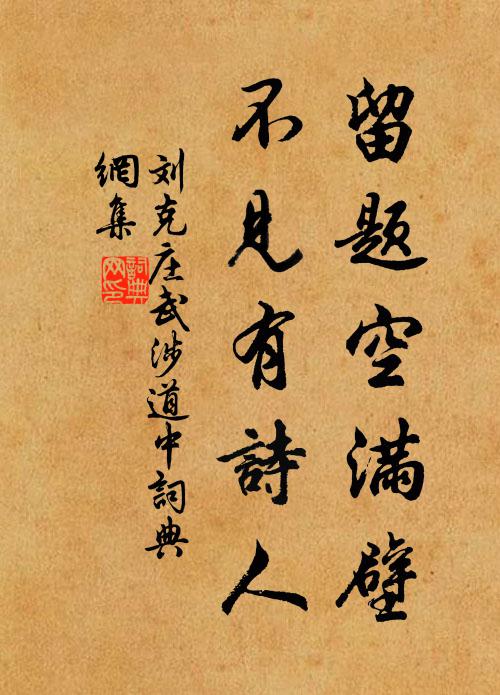 留题空满壁
不见有詩人
刘克庄武涉道中詞典
網集
詞典
网印